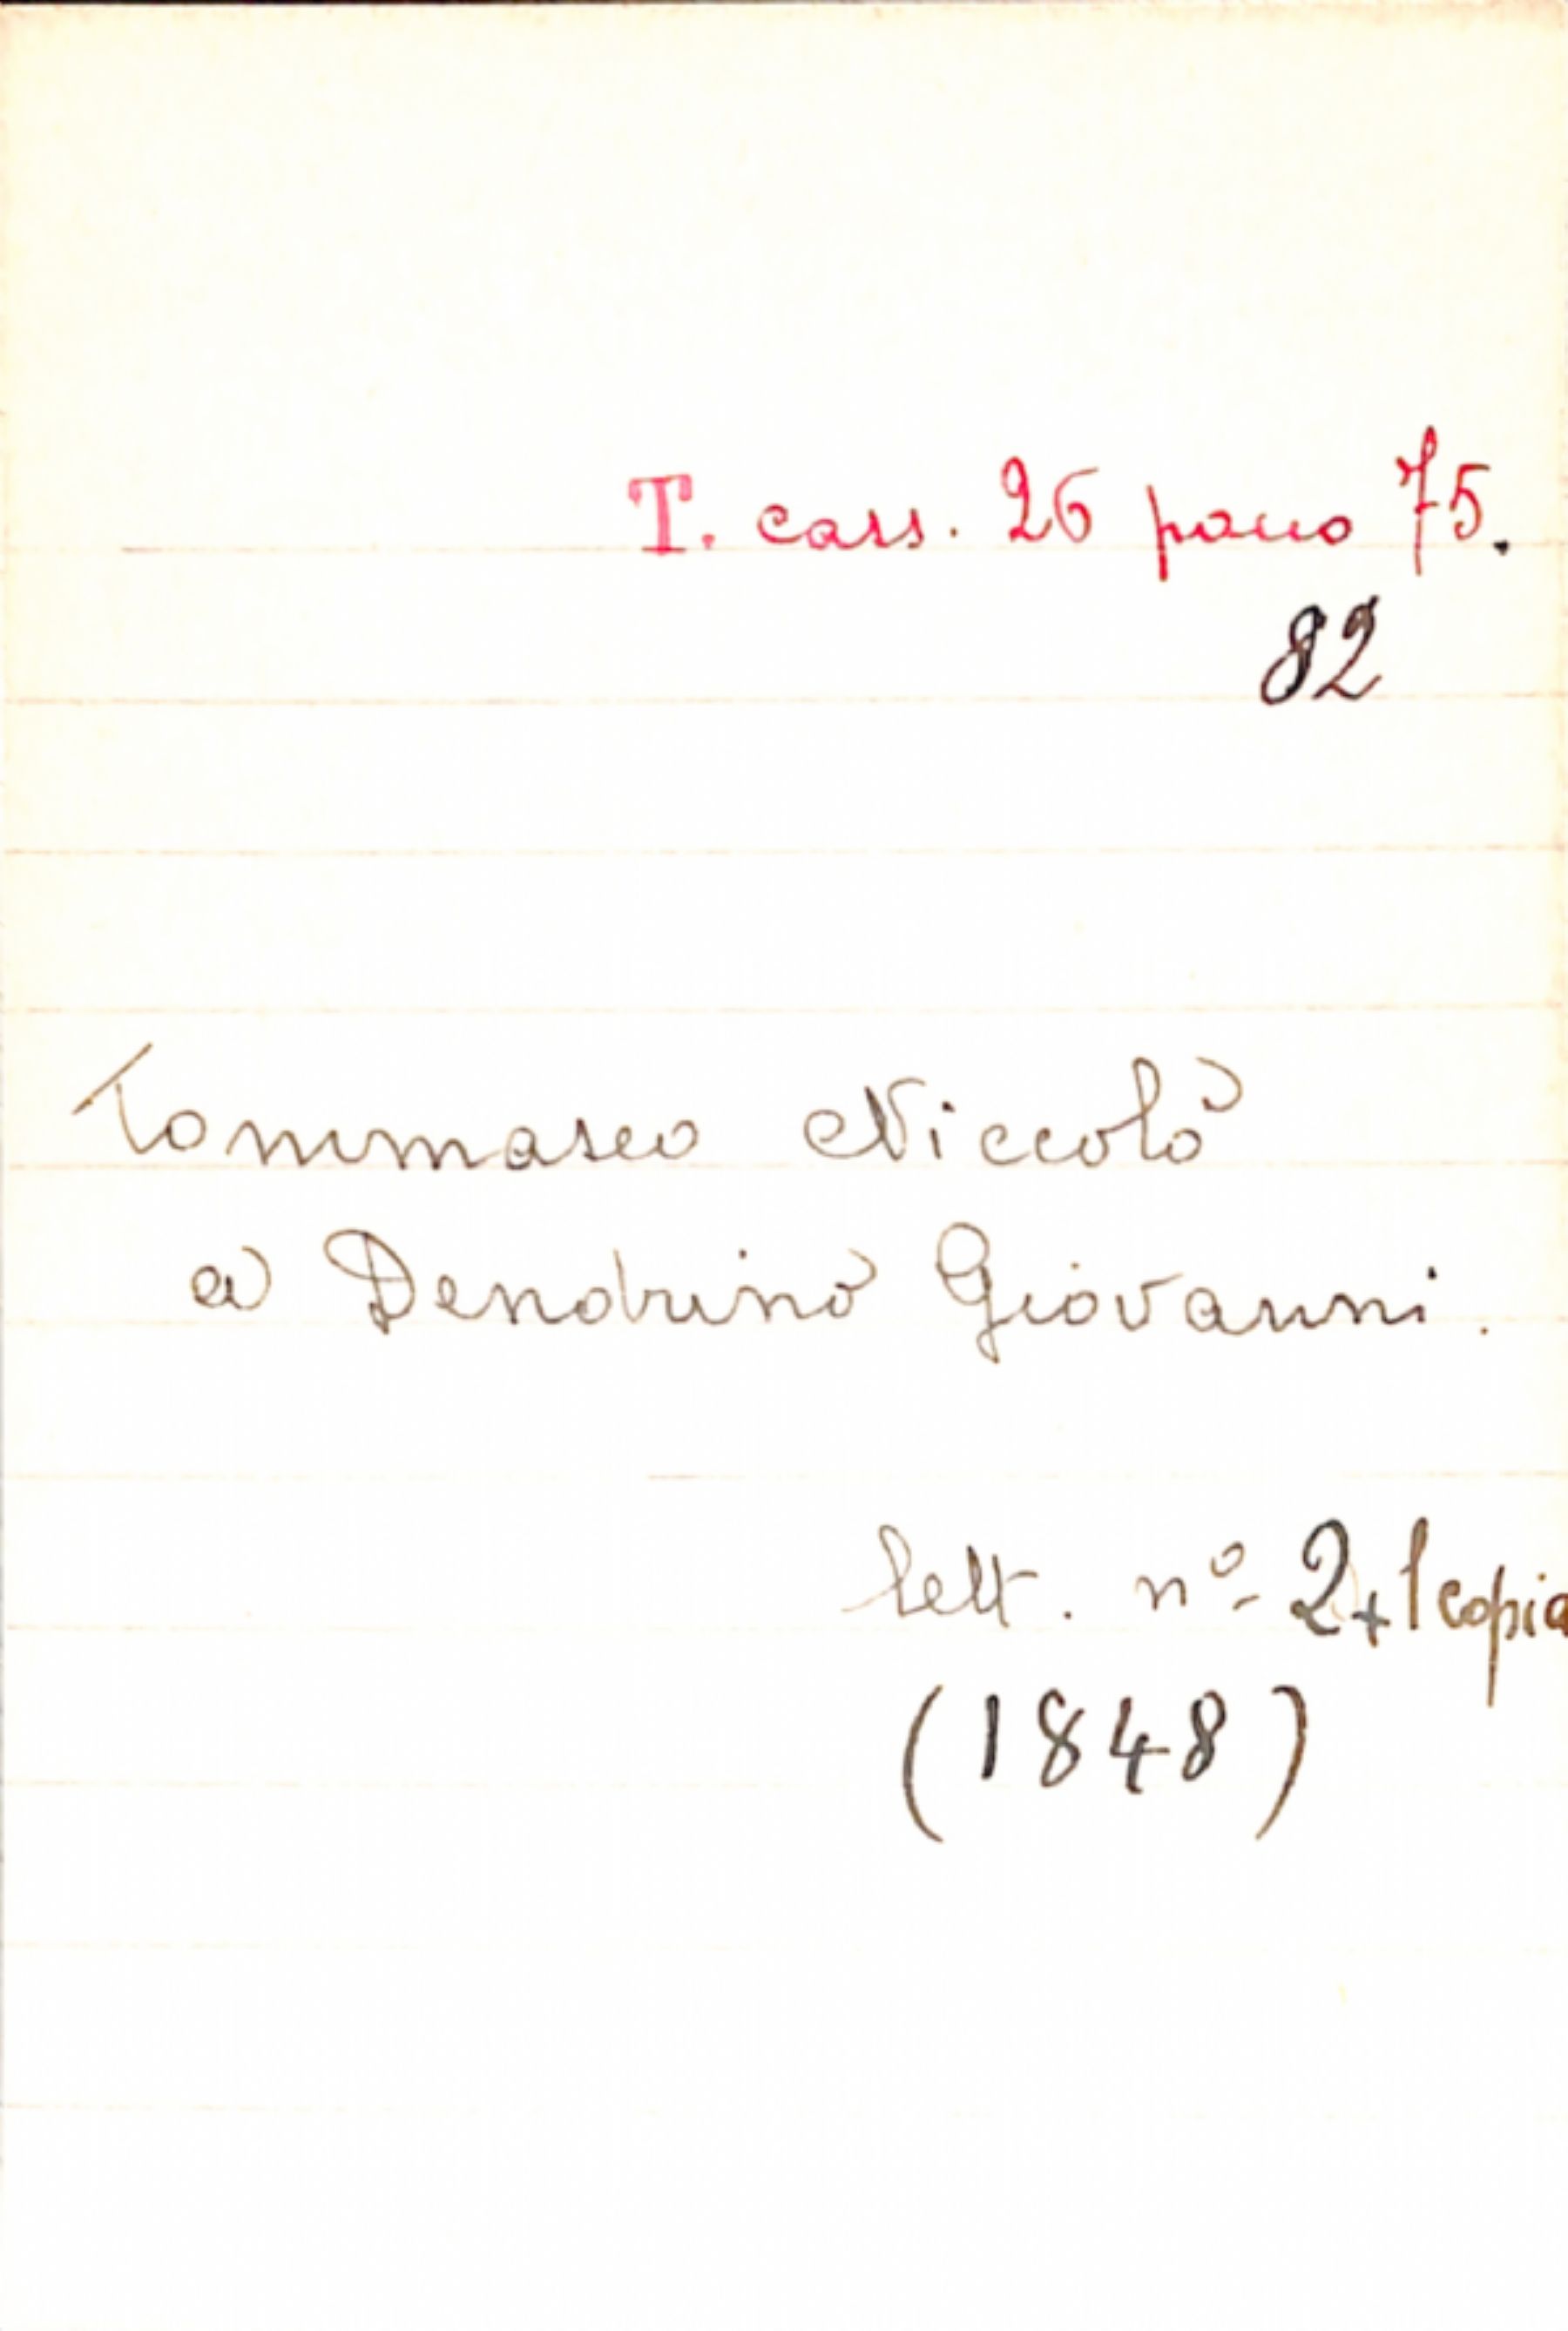 T. cass. 26 pacco 75.
82
Tommaseo Niccolò
a Dendrino Giovanni.
lett. nº 2+1 copia
(1848)